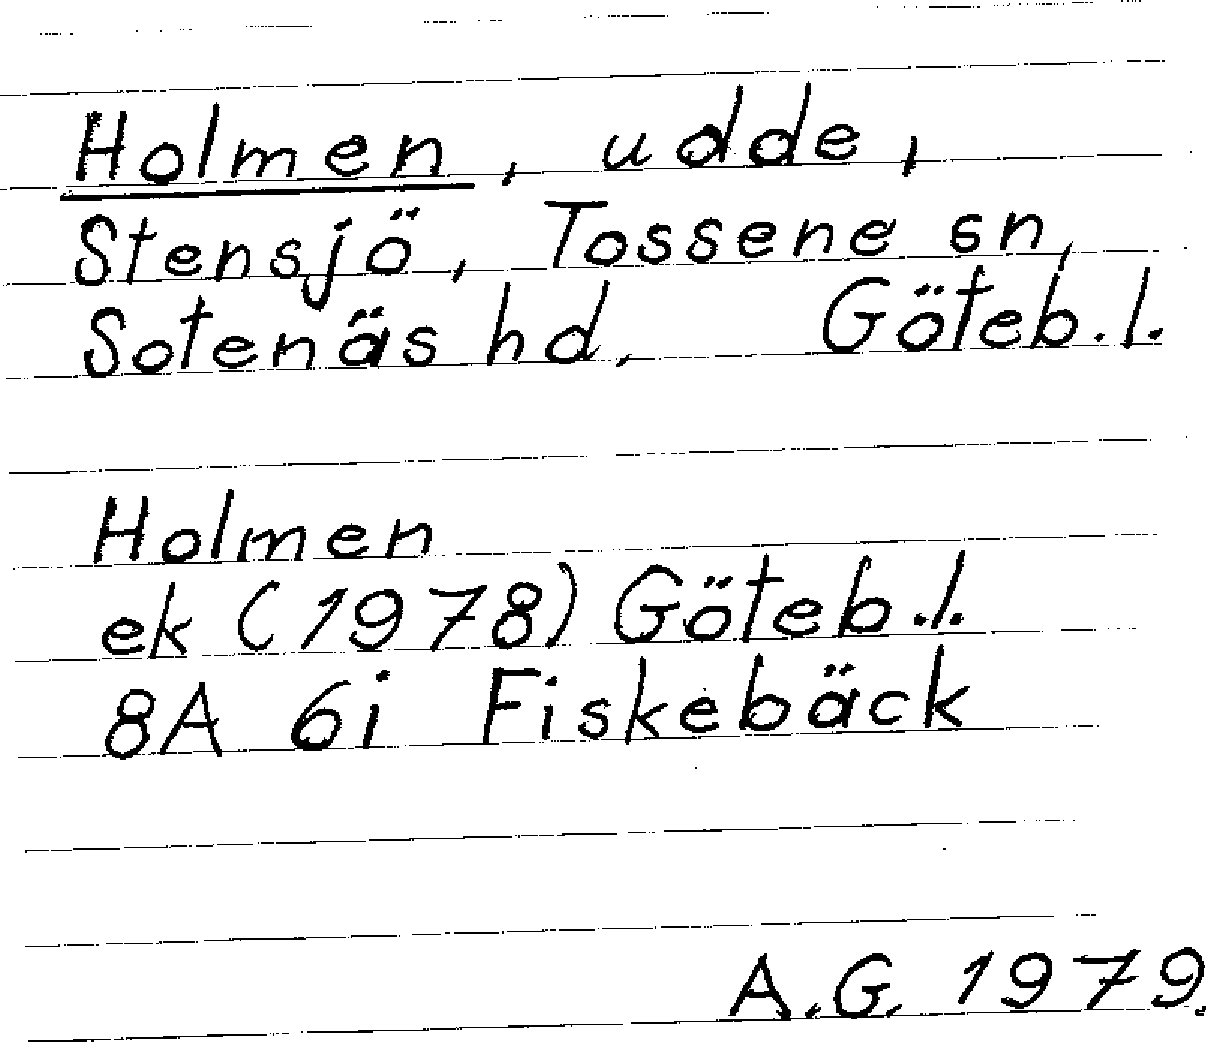 Holmen, udde,
Stensjö, Tossene sn,
Sotenäs hd, Göteb.l.
Holmen
ek (1978) Göteb.l.
8A 6i Fiskebäck
A.G. 1979.